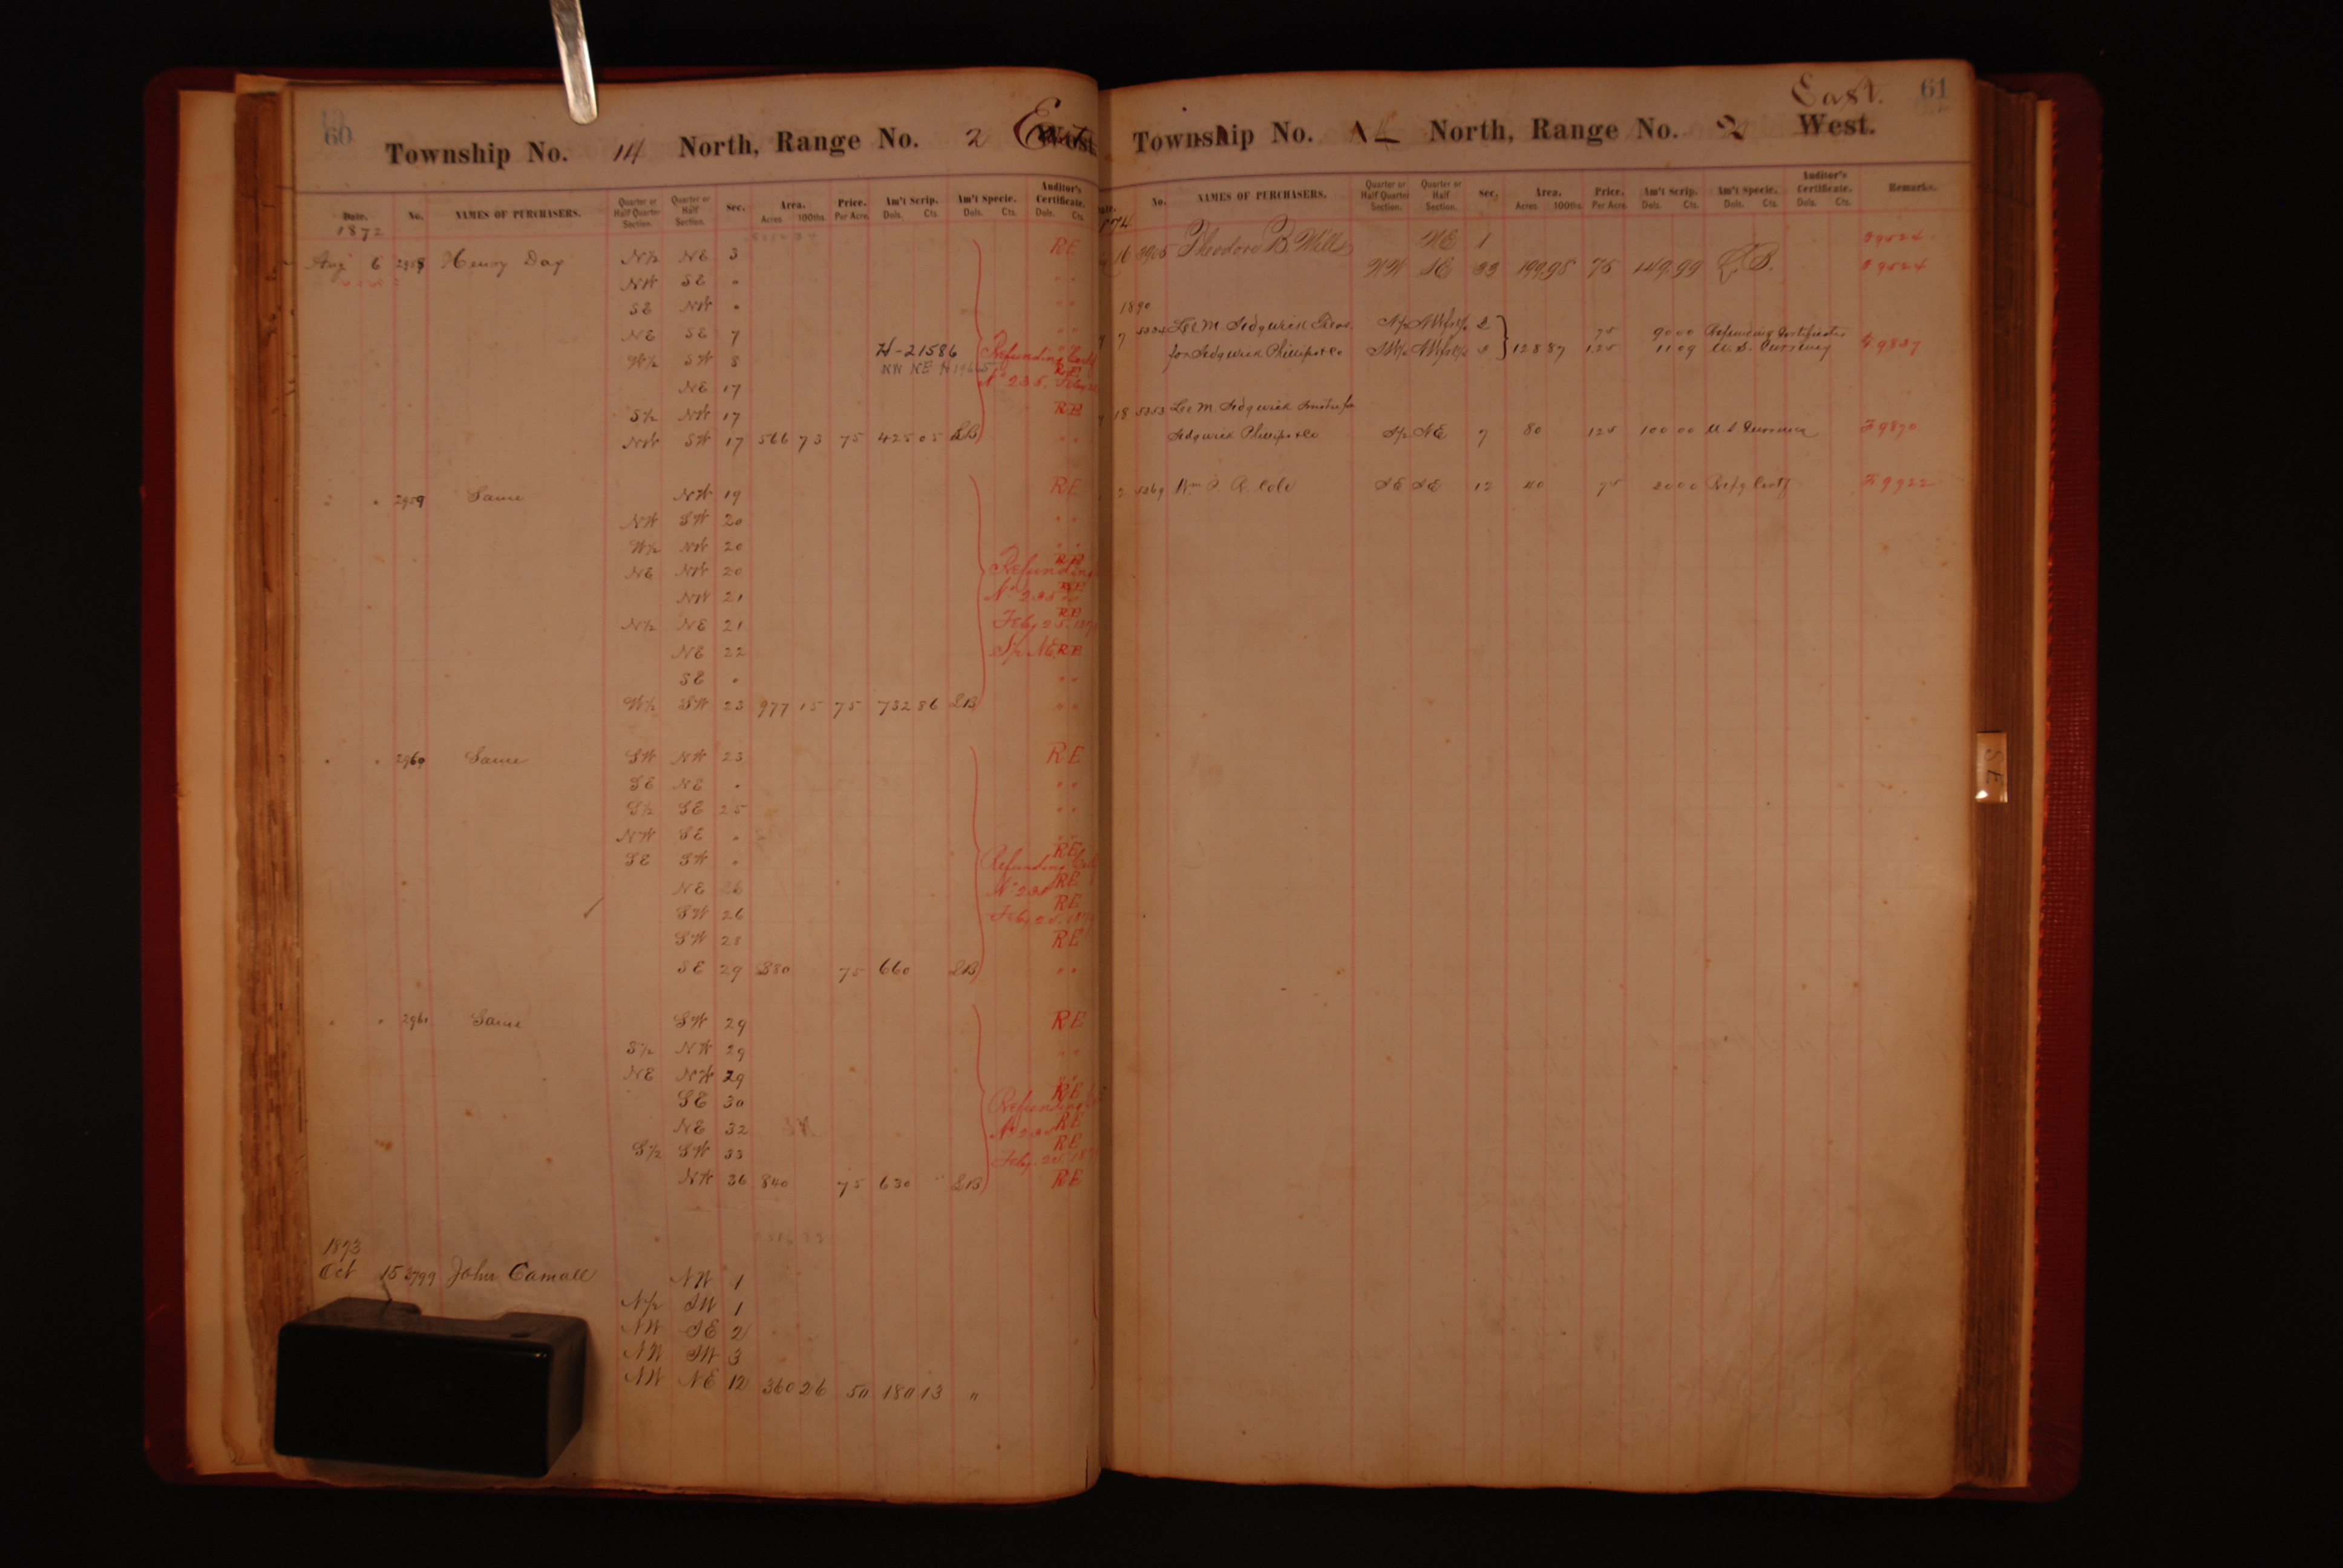 60
Township No. 14 North, Range No. 2 East
Date. No. NAMES OF PURCHASERS. Quarter or Half Quarter Section. Quarter or Half Section. Sec. Area. Acres 100ths. Price. Per Acre. Am't Scrip. Dols. Cts. Am't Specie. Dols. Cts. Auditor's Certificate. Dols. Cts.
1872
Aug 6 2958 Henry Day N½ NE 3 RE
NW SE " " "
SE NW " " "
NE SE 7 " "
W½ SW 8 H-21586 Refunding Cert
NE 17 NW NE No 235, Feby RE
S½ NW 17 RE
NW SW 17 566 73 75 425 05 LB " "
" " 2959 Same NW 19 RE
NW SW 20 " "
W½ NW 20 " "
NE NW 20 Refunding RE
NW 21 No 235 RE
N½ NE 21 Feby 25, 187 RE
NE 22 S½ NE RE
SE " " "
W½ SW 23 977 15 75 732 86 LB " "
" " 2960 Same SW NW 23 RE
SE NE " " "
S½ SE 25 " "
NW SE " " "
SE SW " Refunding RE
NE 26 No 235 RE
SW 26 Feby 25, 187 RE
SW 28 RE
SE 29 880 75 660 LB " "
" " 2961 Same SW 29 RE
S½ NW 29 " "
NE NW 29 " "
SE 30 Refunding RE
NE 32 No 235 RE
S½ SW 33 Feby. 25, 187 RE
NW 36 840 75 630 " LB RE
1873
Oct 15 3799 John Camall NW 1
N½ SW 1
NW SE 2
NW SW 3
NW NE 12 360 26 50 180 13 "
61
East.
Township No. 14 North, Range No. 2 West.
No. NAMES OF PURCHASERS. Quarter or Half Quarter Section. Quarter or Half Section. Sec. Area. Acres 100ths. Price. Per Acre. Am't Scrip. Dols. Cts. Am't Specie. Dols. Cts. Auditor's Certificate. Dols. Cts. Remarks.
16 3905 Theodore B. Mills NE 1 39524
NW SE 33 199.98 75 149.99 L.B. 39524
1890
7 5335 Lee M. Sedgwick Treas. N½ NWfrl¼ 2 75 90 00 Refunding Certificates
for Sedgwick Phillips & Co SW¼ NWfrl¼ 2 128 87 125 11 09 U.S. Currency
18 5353 Lee M. Sedgwick Trustee for
Sedgwick Phillips & Co S½ NE 7 80 125 100 00 U S Currency F 9870
2 5369 Wm. P. R. Cole SE SE 12 40 75 30 00 Refg Certf F 9922
SE